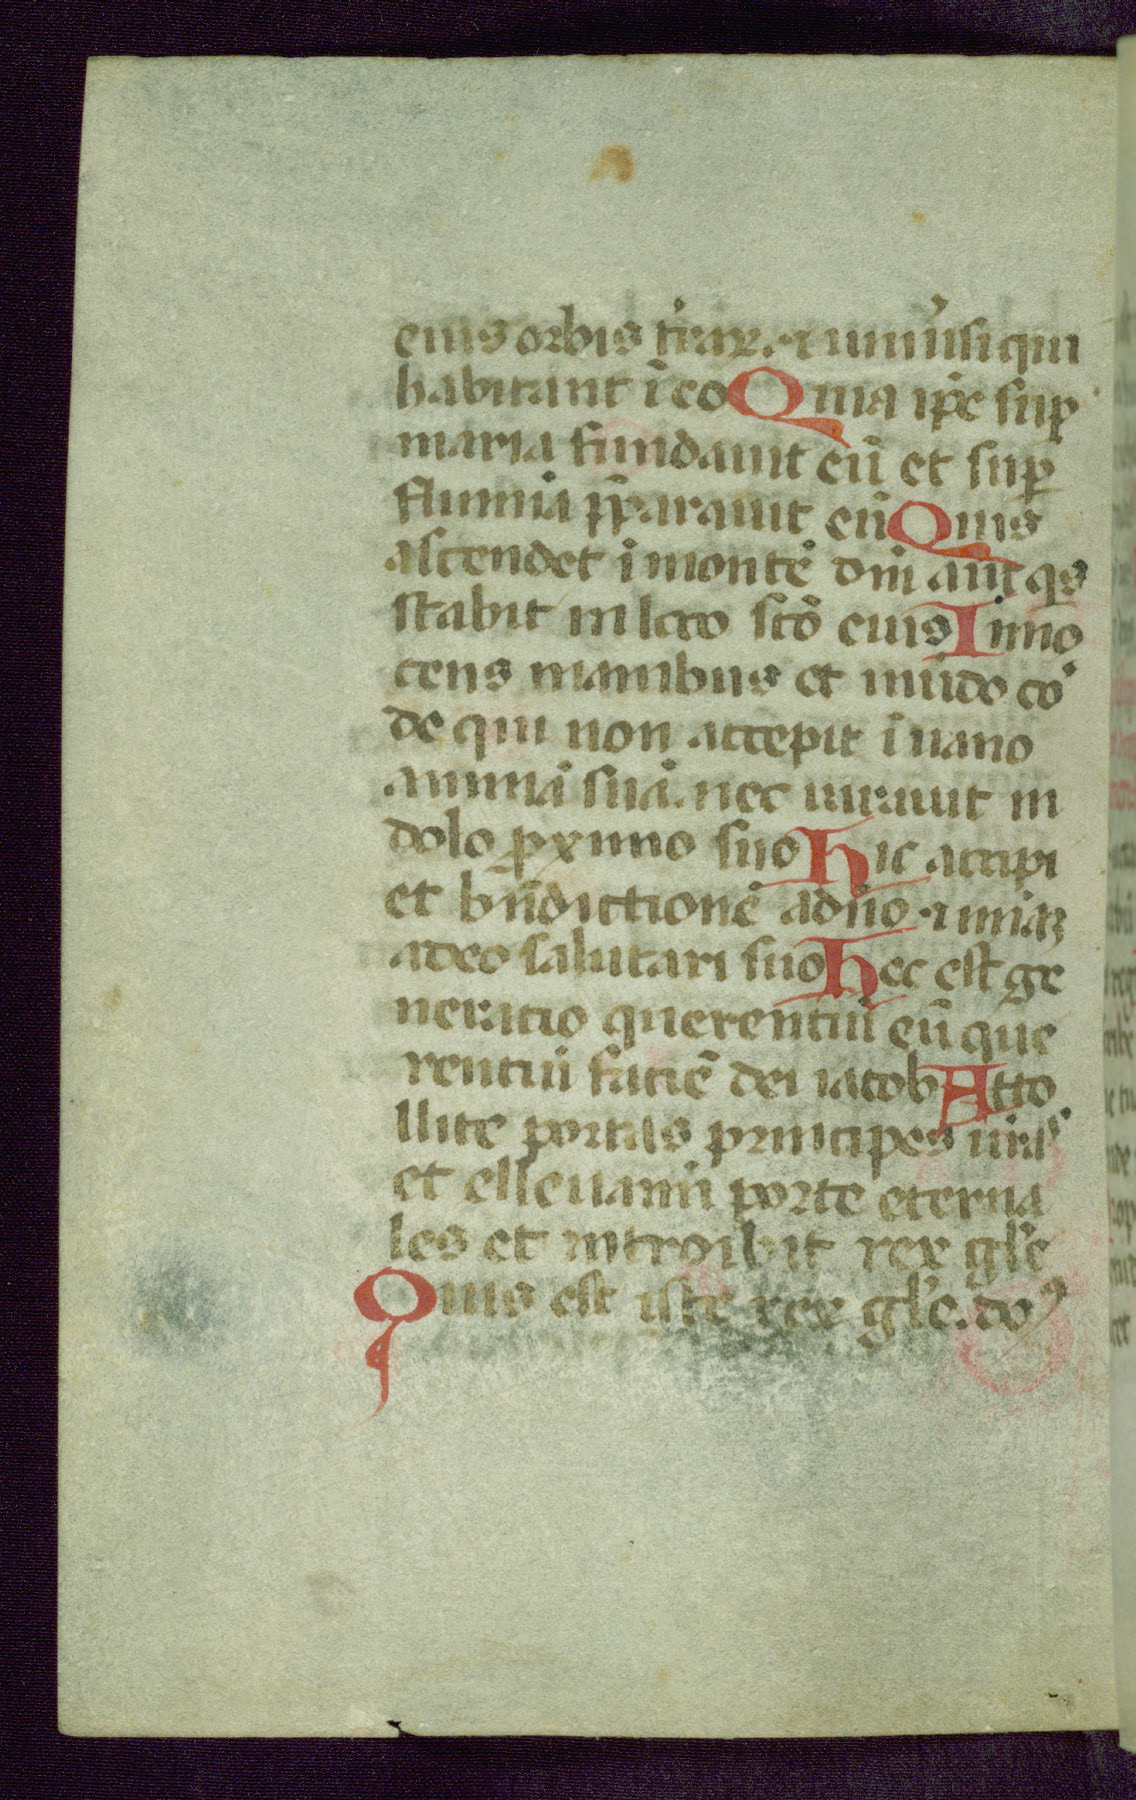 eius orbis t'rarꝝ. ⁊ uniu'si qui
habitant ī eo Quia ip̄e sup̱
maria fundauit eū et sup̱
flumīa p̄parauit eū Quis
ascendet ī montē dn̄i aut qis
stabit in loco scō eius Inno
cens manibus et mūdo co'
de qui non accepit ī uano
animā suā. nec iurauit in
dolo ꝓximo suo Hic accipi
et bn̄dictionē adn̄o ⁊ miaꝫ
adeo salutari suo Hec est ge
neratio querentiū eū que
rentiū faciē dei iacob Atto
llite portas principes ur̄as
et elleuamī porte eterna
les et introibit rex gl'e
Quis est iste rex gl'e. do⁹